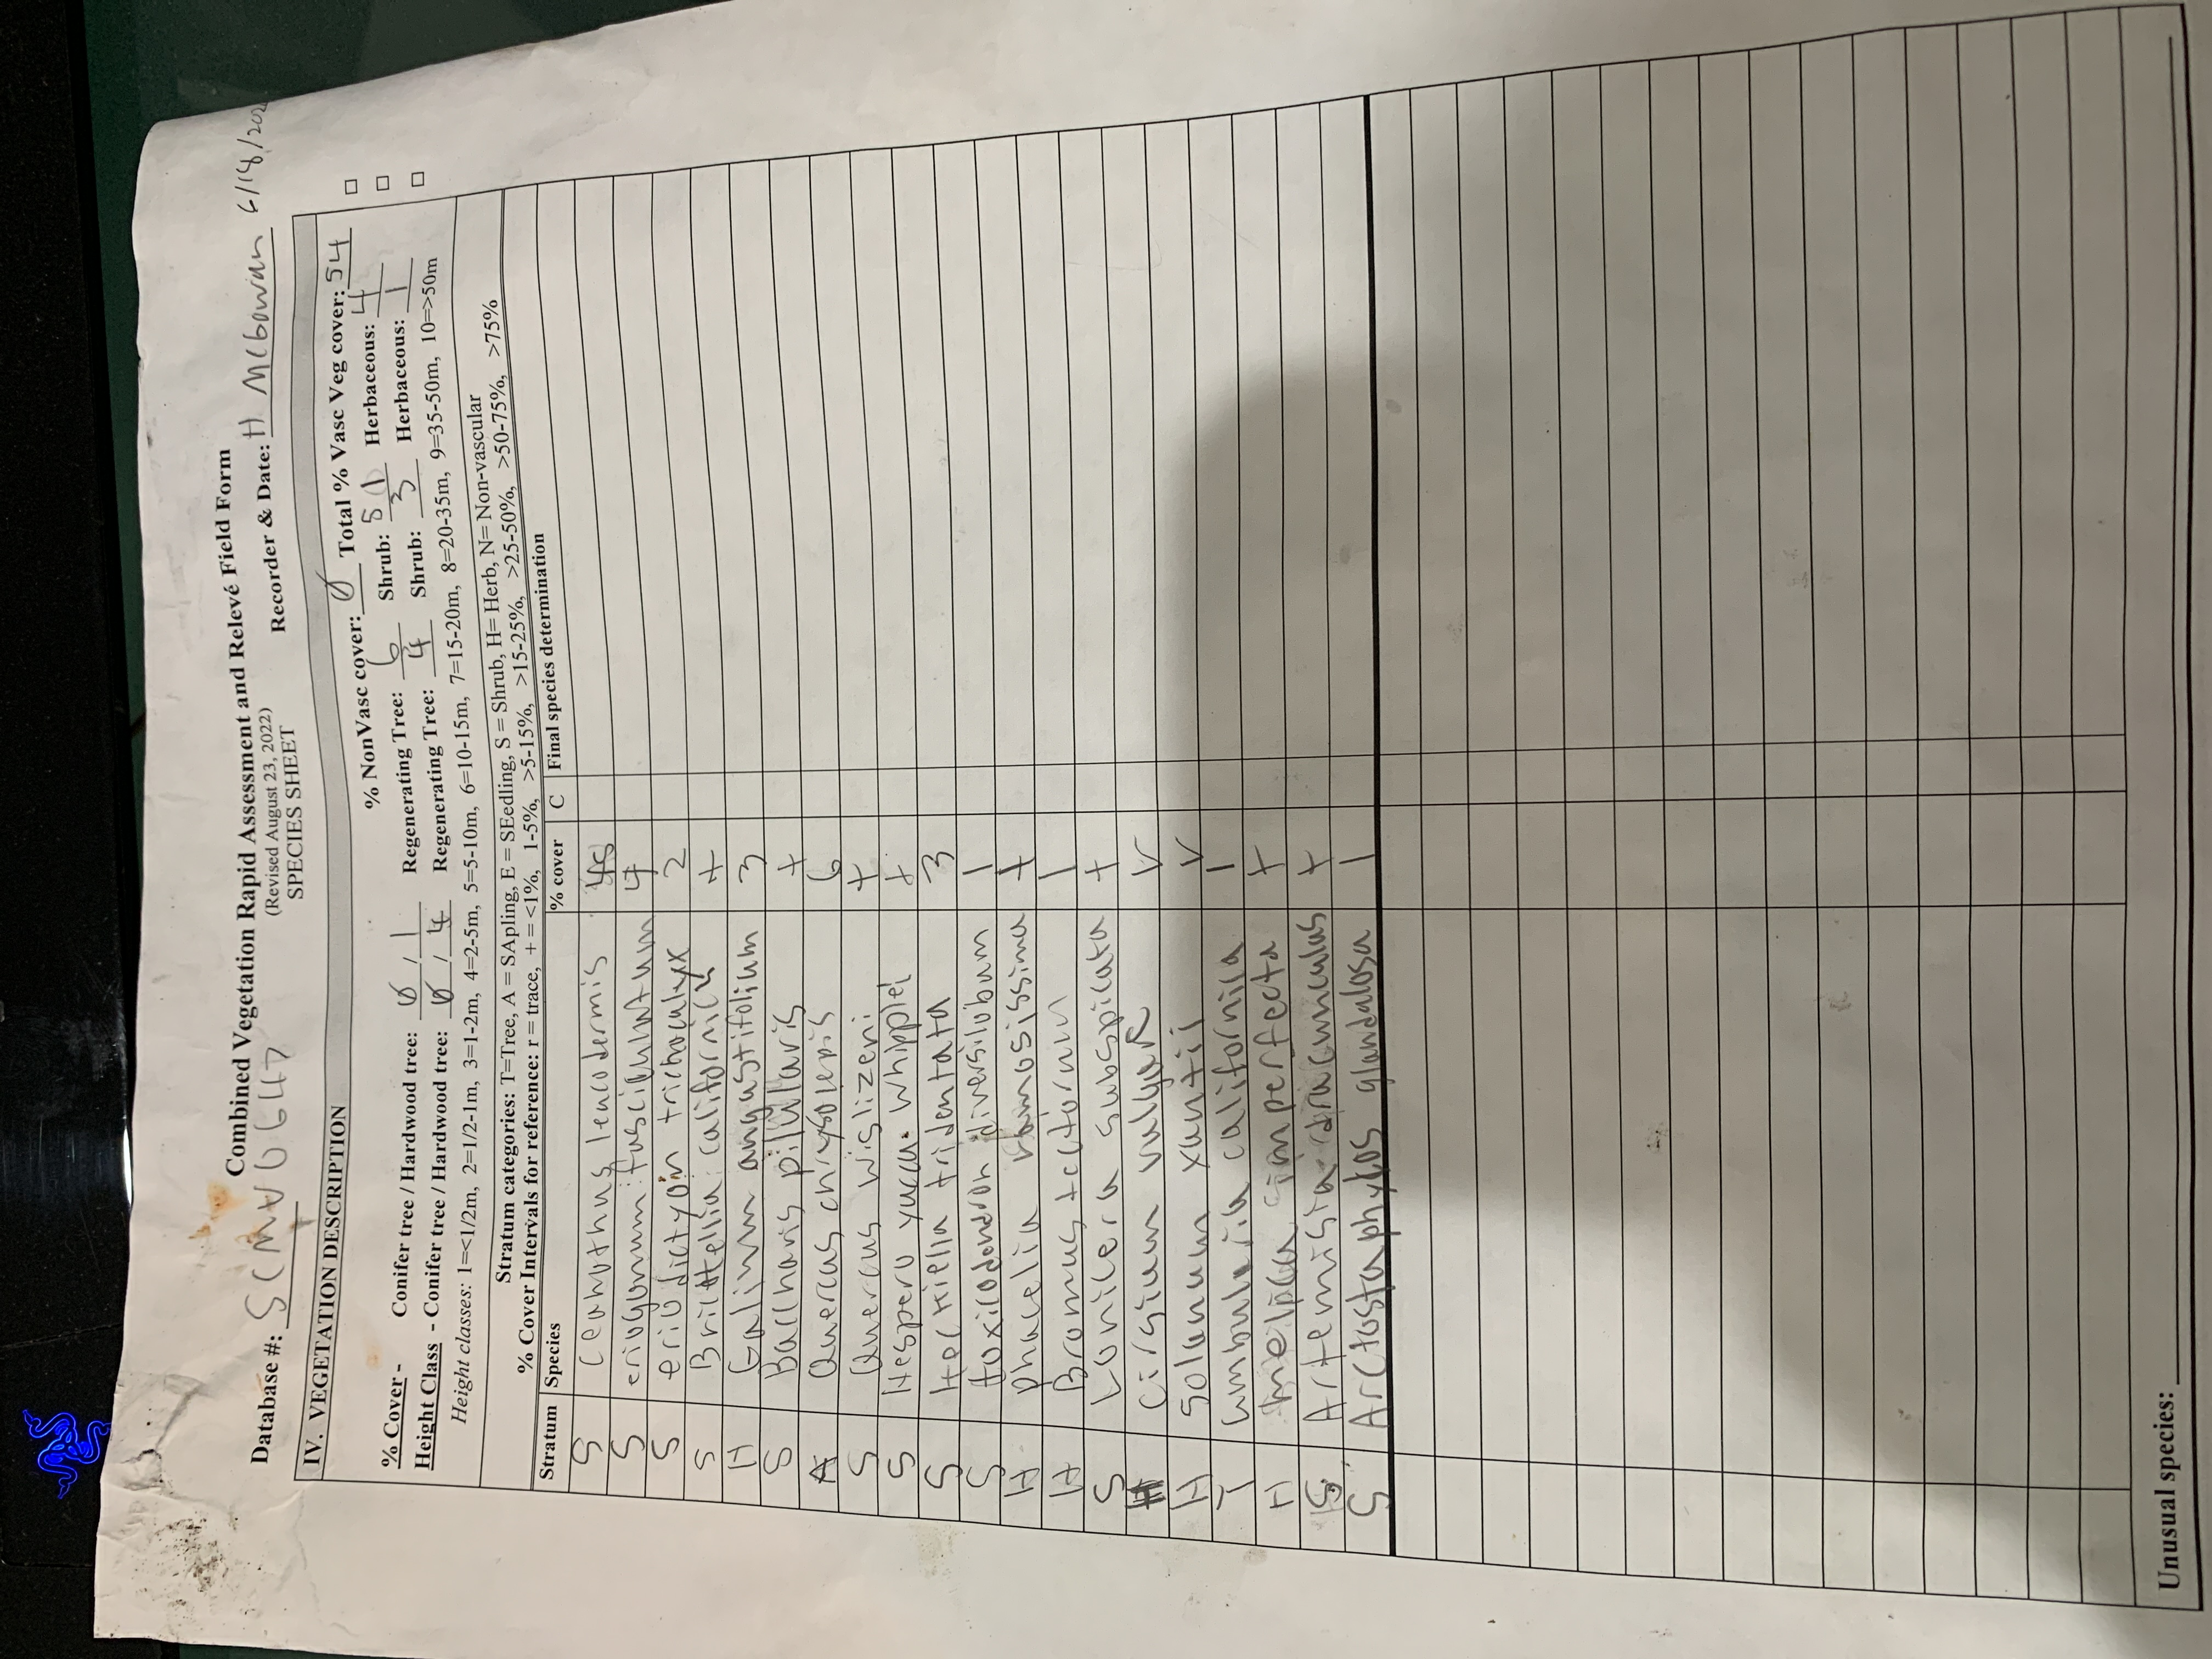 Combined Vegetation Rapid Assessment and Relevé Field Form
(Revised August 23, 2022)
SPECIES SHEET
Database #: Recorder & Date: H McGowan 6/18/202
IV. VEGETATION DESCRIPTION
% NonVasc cover: Ø Total % Vasc Veg cover: 54
% Cover - Conifer tree / Hardwood tree: Ø / 1 Regenerating Tree: 6 Shrub: 51 Herbaceous: 4
Height Class - Conifer tree / Hardwood tree: Ø / 4 Regenerating Tree: 4 Shrub: 3 Herbaceous: 1
Height classes: 1=<1/2m, 2=1/2-1m, 3=1-2m, 4=2-5m, 5=5-10m, 6=10-15m, 7=15-20m, 8=20-35m, 9=35-50m, 10=>50m
Stratum categories: T=Tree, A = SApling, E = SEedling, S = Shrub, H= Herb, N= Non-vascular
% Cover Intervals for reference: r = trace, + = <1%, 1-5%, >5-15%, >15-25%, >25-50%, >50-75%, >75%
Stratum Species % cover C Final species determination
S Ceanothus leucodermis
S eriogonum fasciculatum 4
S eriodictyon trichocalyx 2
S Brickellia californica +
H Galium angustifolium 3
S Baccharis pilularis +
A Quercus chrysolepis 6
S Quercus wislizeni +
S Hesperoyucca whipplei +
S Hectiella tridentata 3
S toxicodendron diversilobum 1
H phacelia ramosissima +
H Bromus tectorum 1
S Lonicera subspicata +
H Cirsium vulgare r
H Solanum xantii r
T umbularia californica 1
H melica imperfecta +
S Artemisia dracunculus +
S Arctostaphylos glandulosa 1
Unusual species: